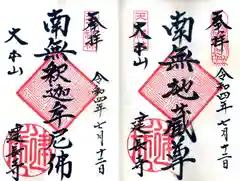 奉拝
令和四年七月十二日
南無釈迦牟尼佛
大本山
建長寺
奉拝
令和四年七月十二日
南無地蔵尊
大本山
建長寺